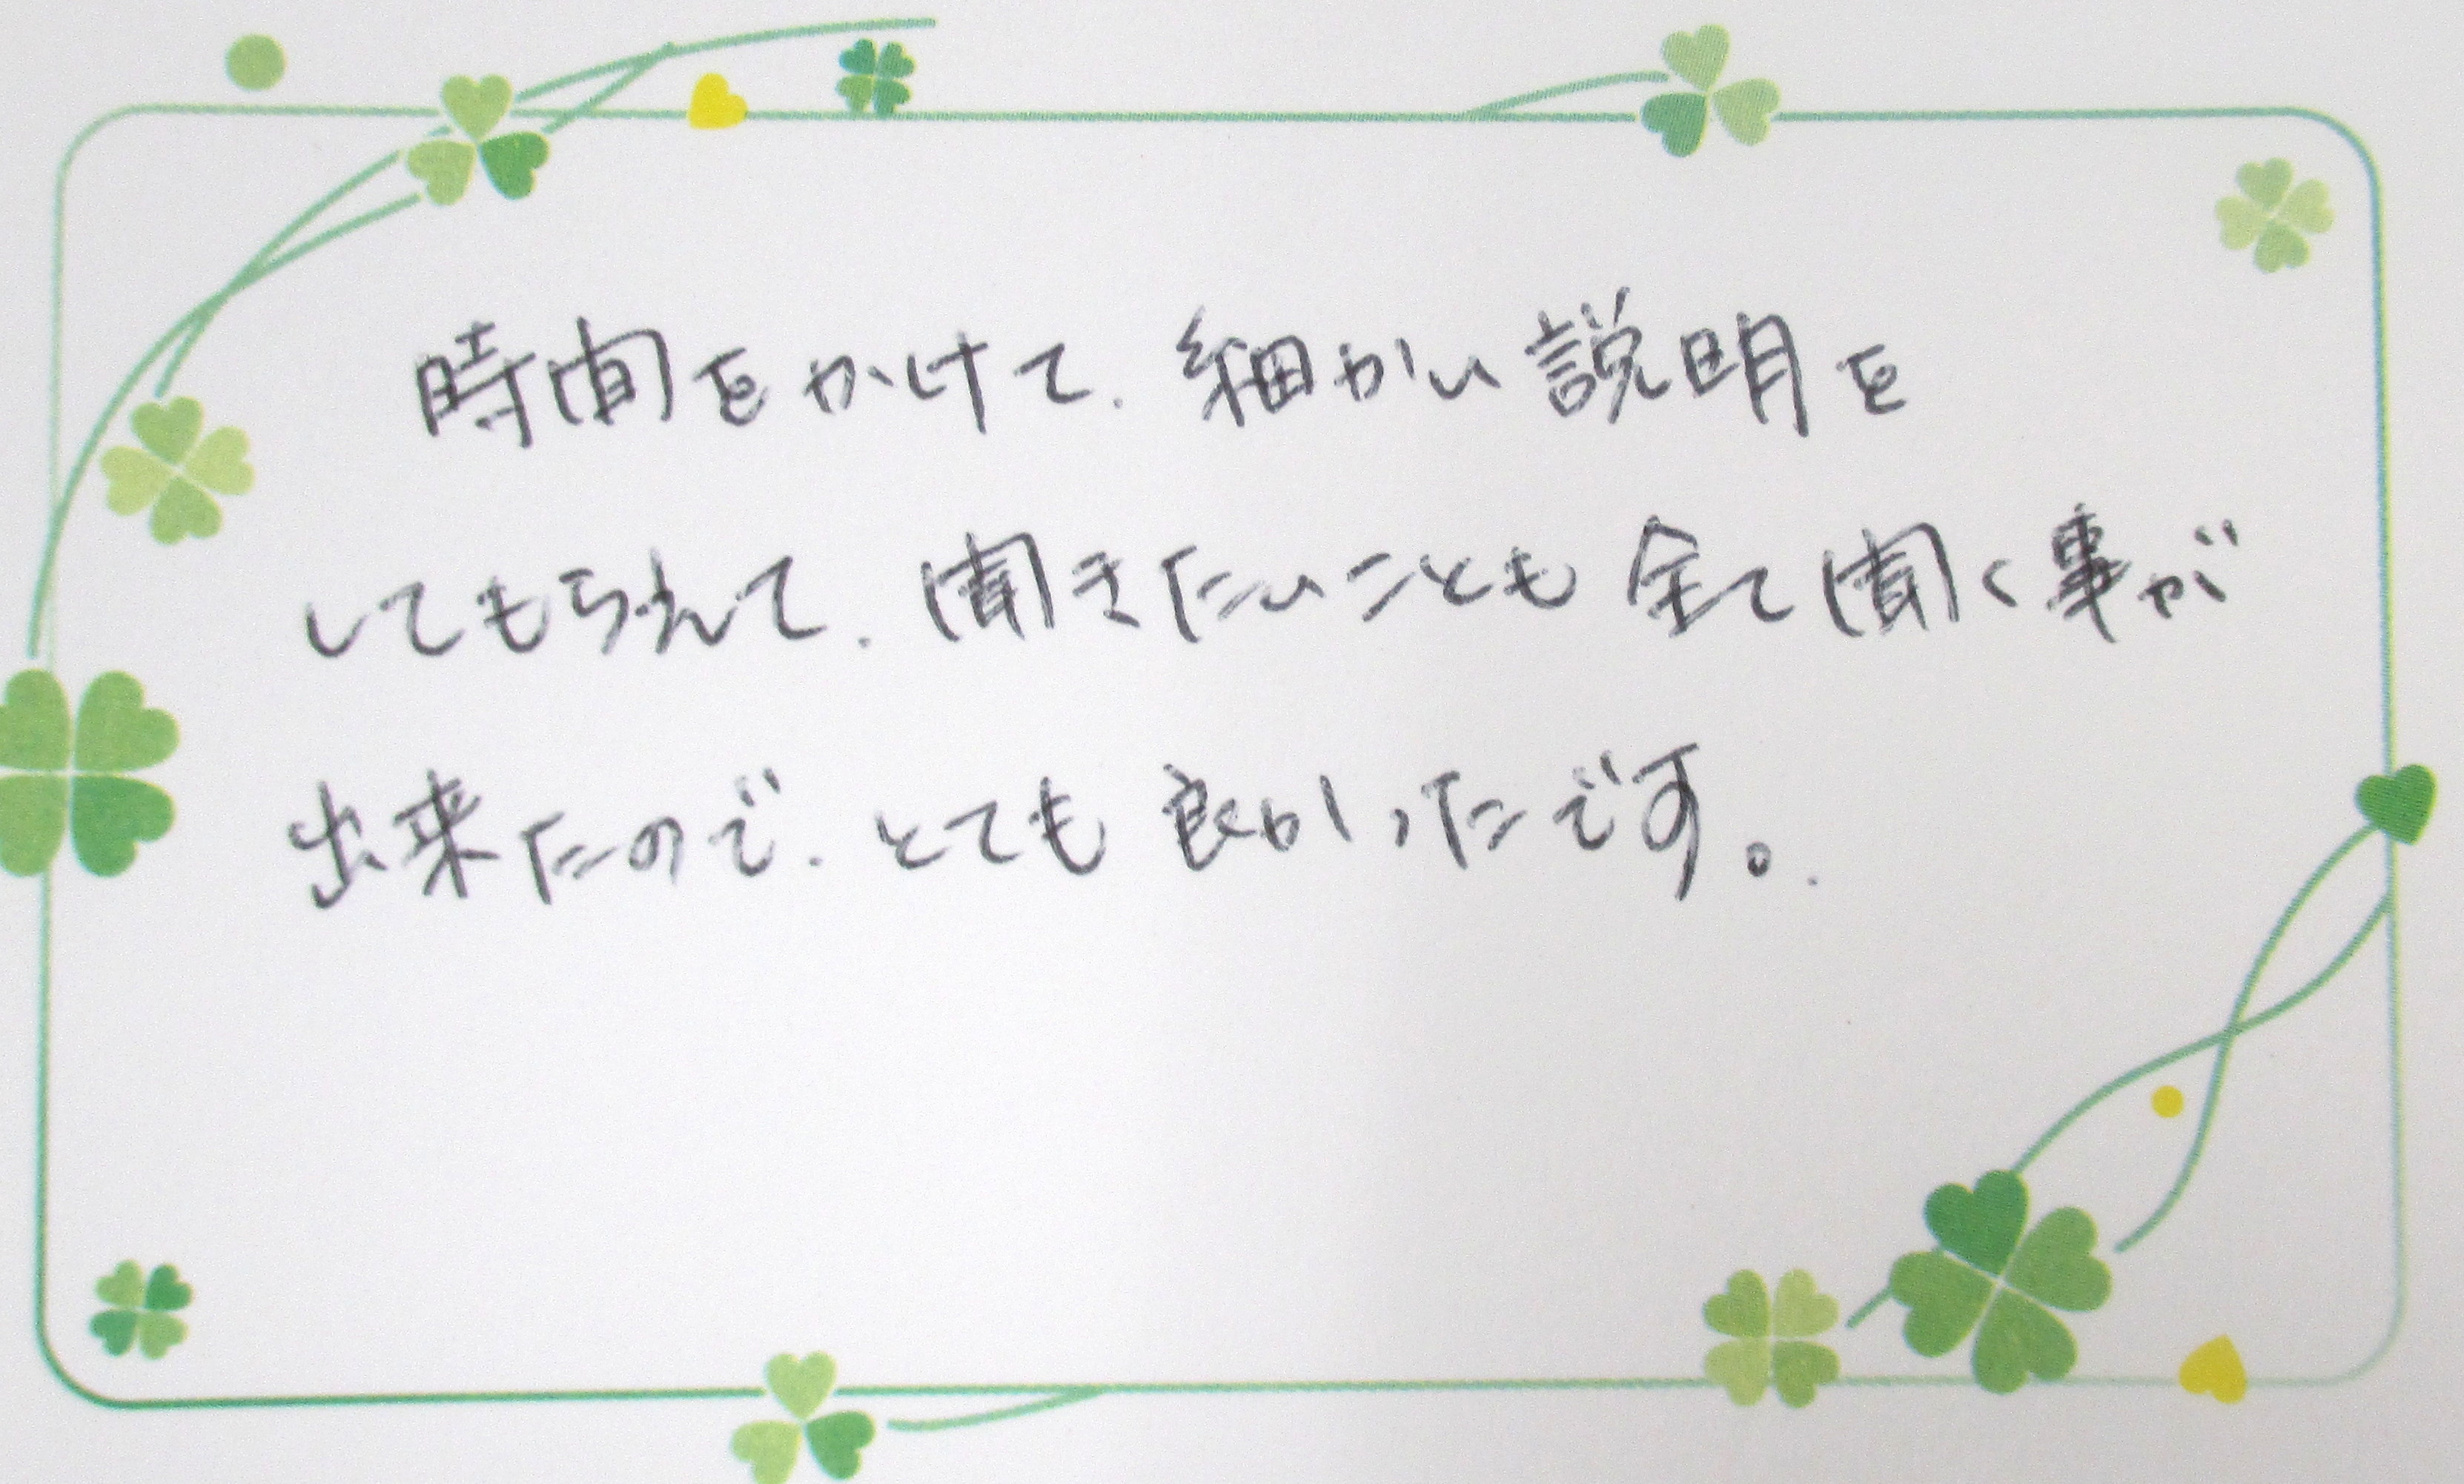 時間をかけて、細かい説明を
してもらえて、聞きたいことも全て聞く事が
出来たので、とても良かったです。